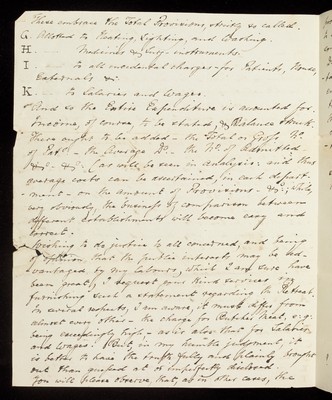 These embrace the Total Provisions, strictly so called.
G. Allotted to Heating, Lighting, and Washing.
H. ... Medicines & Surgy instruments.
I. ... to all incidental charges - for Patients, House,
Externals &c
K. ... to Salaries and Wages.
And so the Entire Expenditure is accounted for.
Income, of course, to be stated, & Balance struck.
There ought to be added - the Total or Gross No.
of - the Average Do. - the No. of Admitted
&c - &c. (as will be seen in analysis) and thus
average costs can be ascertained, in each depart-
-ment - on the amount of Provisions - &c; while,
very obviously, the business of comparison between
different establishments will become easy and
correct.
Wishing to do justice to all concerned, and being
of opinion that the public interests may be ad-
-vantaged by my labours, which I am sure have
been great, I request your kind services in
furnishing such a statement regarding the Retreat.
In several respects, I am aware, it must differ from
almost every other - the charge for Butcher Meat, e.g.
being exceedingly high - as is also that for Salaries
and Wages. But, in my humble judgment, it
is better to have the truth fully and plainly brought
out than guessed at or imperfectly disclosed.
You will please observe, that, as in other cases, the